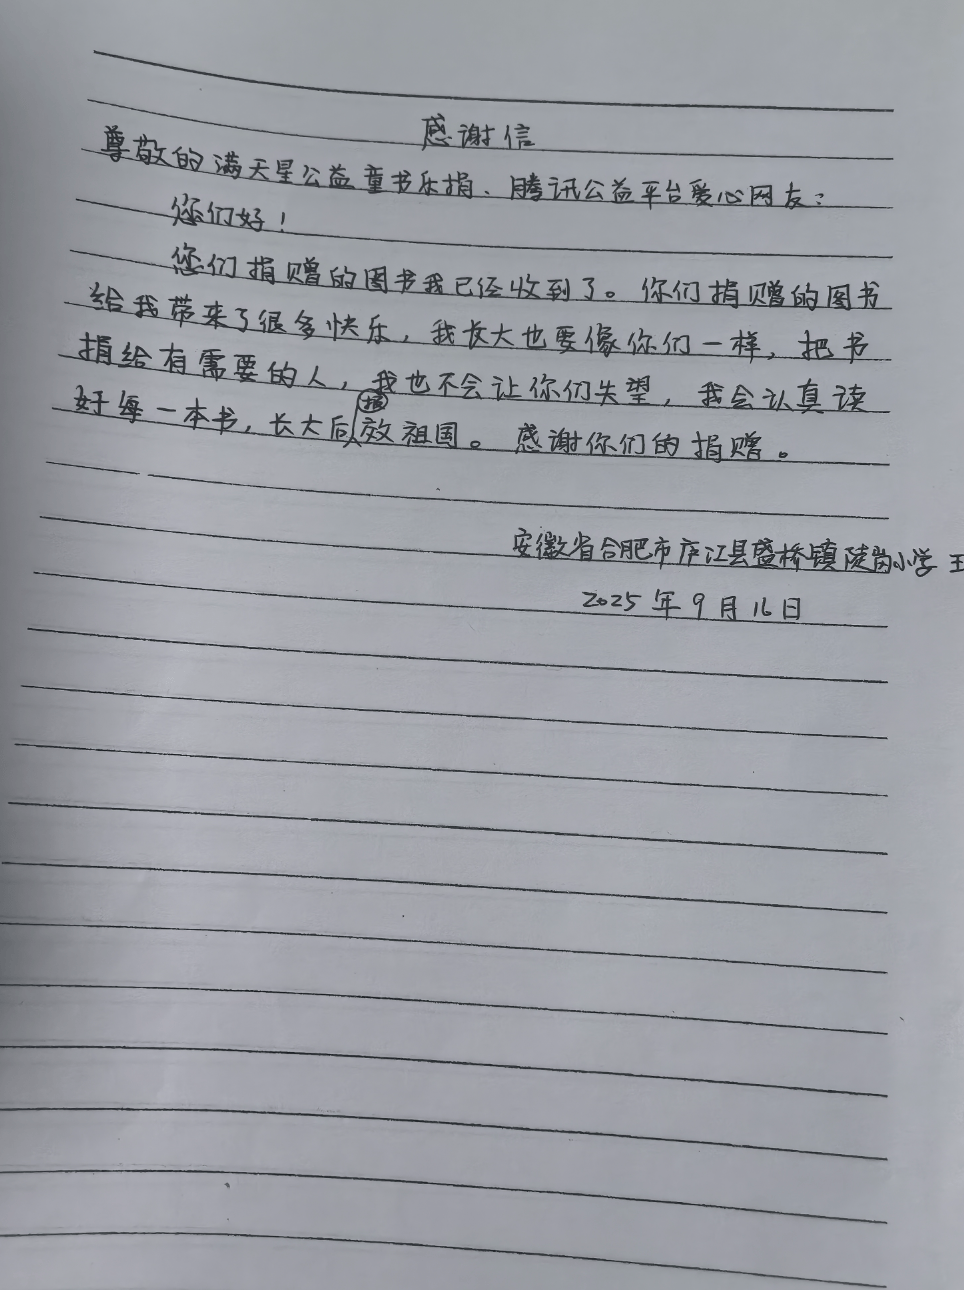 感谢信
尊敬的满天星公益童书乐捐、腾讯公益平台爱心网友：
您们好！
您们捐赠的图书我已经收到了。你们捐赠的图书
给我带来了很多快乐，我长大也要像你们一样，把书
捐给有需要的人，我也不会让你们失望，我会认真读
好每一本书，长大后效祖国。感谢你们的捐赠。
安徽省合肥市庐江县盛桥镇陡岗小学 王
2025年9月16日